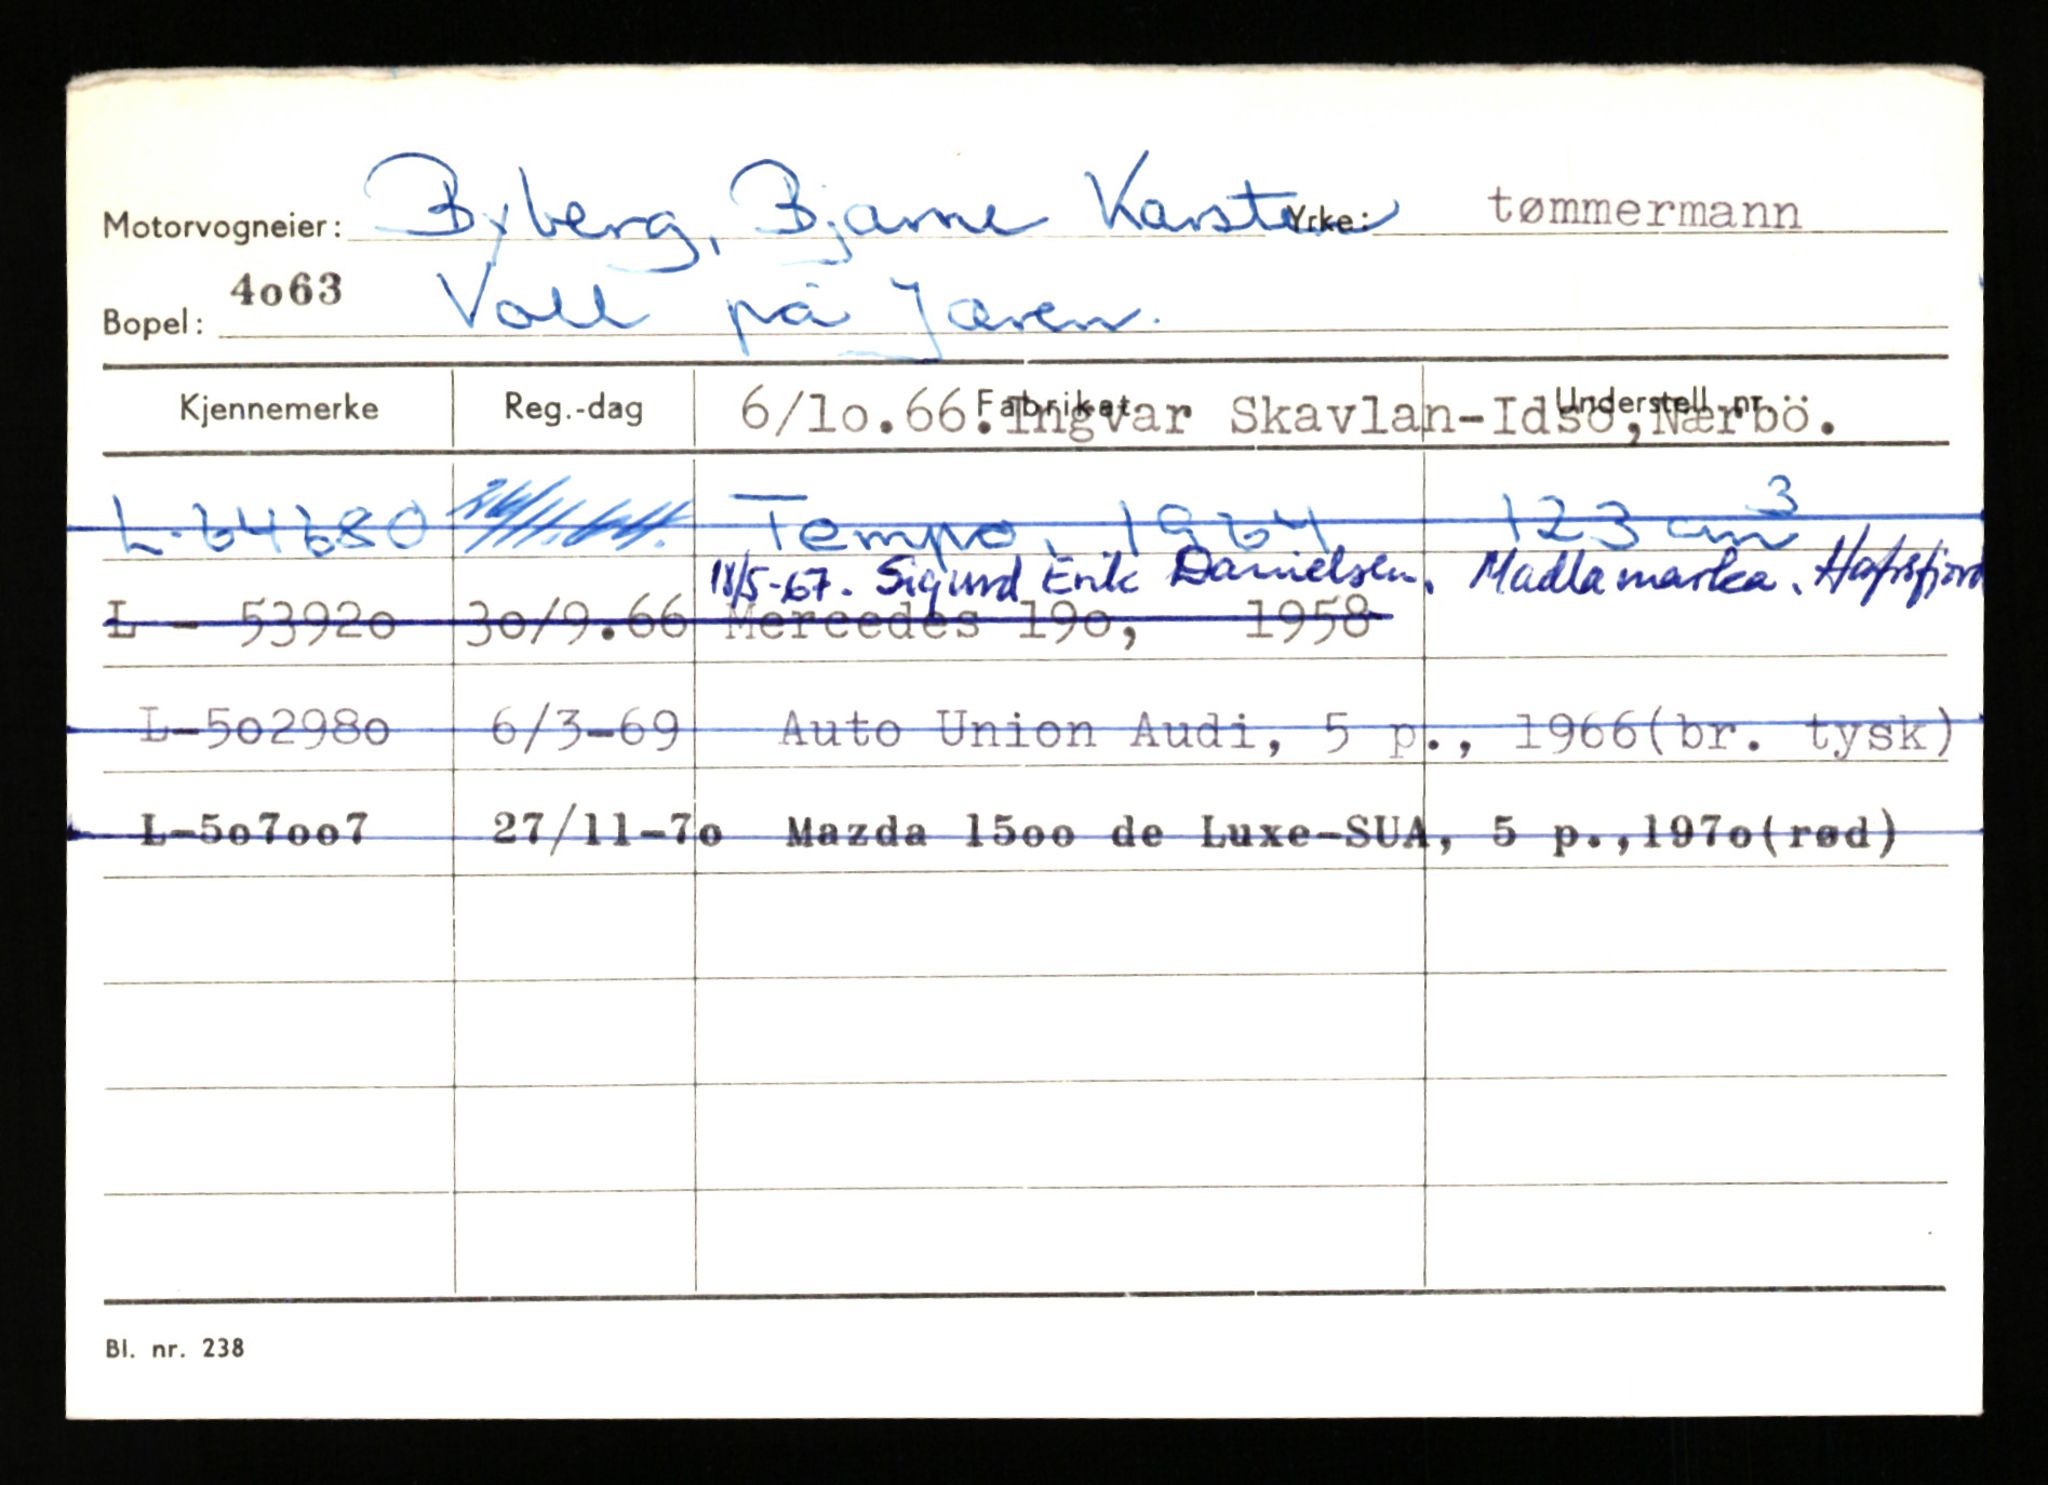 Motorvogneier: Byberg, Bjarne Karsten Yrke: tømmermann
Bopel: 4o63 Voll på Jæren.
Kjennemerke Reg.-dag Fabrikat Understell nr.
6/1o.66.Ingvar Skavlan-Idsö,Nærbö.
L-64680 Tempo, 1964 123 cm³
18/5-67. Sigurd Erik Danielsen, Madlamarka. Hafrsfjord
L - 5392o 3o/9.66 Mercedes 19o, 1958
L-5o298o 6/3-69 Auto Union Audi, 5 p., 1966(br. tysk)
L-5o7oo7 27/11-7o Mazda 15oo de Luxe-SUA, 5 p.,197o(rød)
Bl. nr. 238